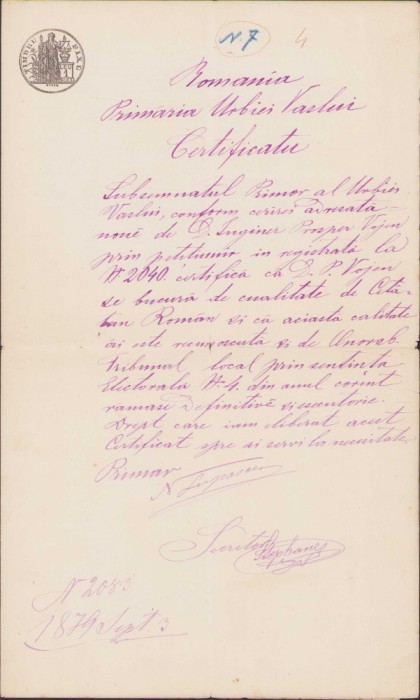 TIMBRU FIX
N. 7
4
Romania
Primăria Urbiei Vaslui
Certificatu
Subsemnatul Primar al Urbiei
Vaslui, conform cererei adresata
nouĕ de D. Inginer Prosper Vojen
prin petitiunea in registrată la
N 2040. certifică că D. P. Vojen
se bucură de cualitate de Cetă-
ţan Român si că aciasta calitate
ĭi este recunoscută si de Onorab.
Tribunal local prin sentinta
Electorală N. 4. din anul corent
ramasa definitivĕ si esecutorie.
Drept care iam eliberat acest
Certificat spre ai servi la necesitate
Primar
Secretar
N 2083
1879 Sept 3